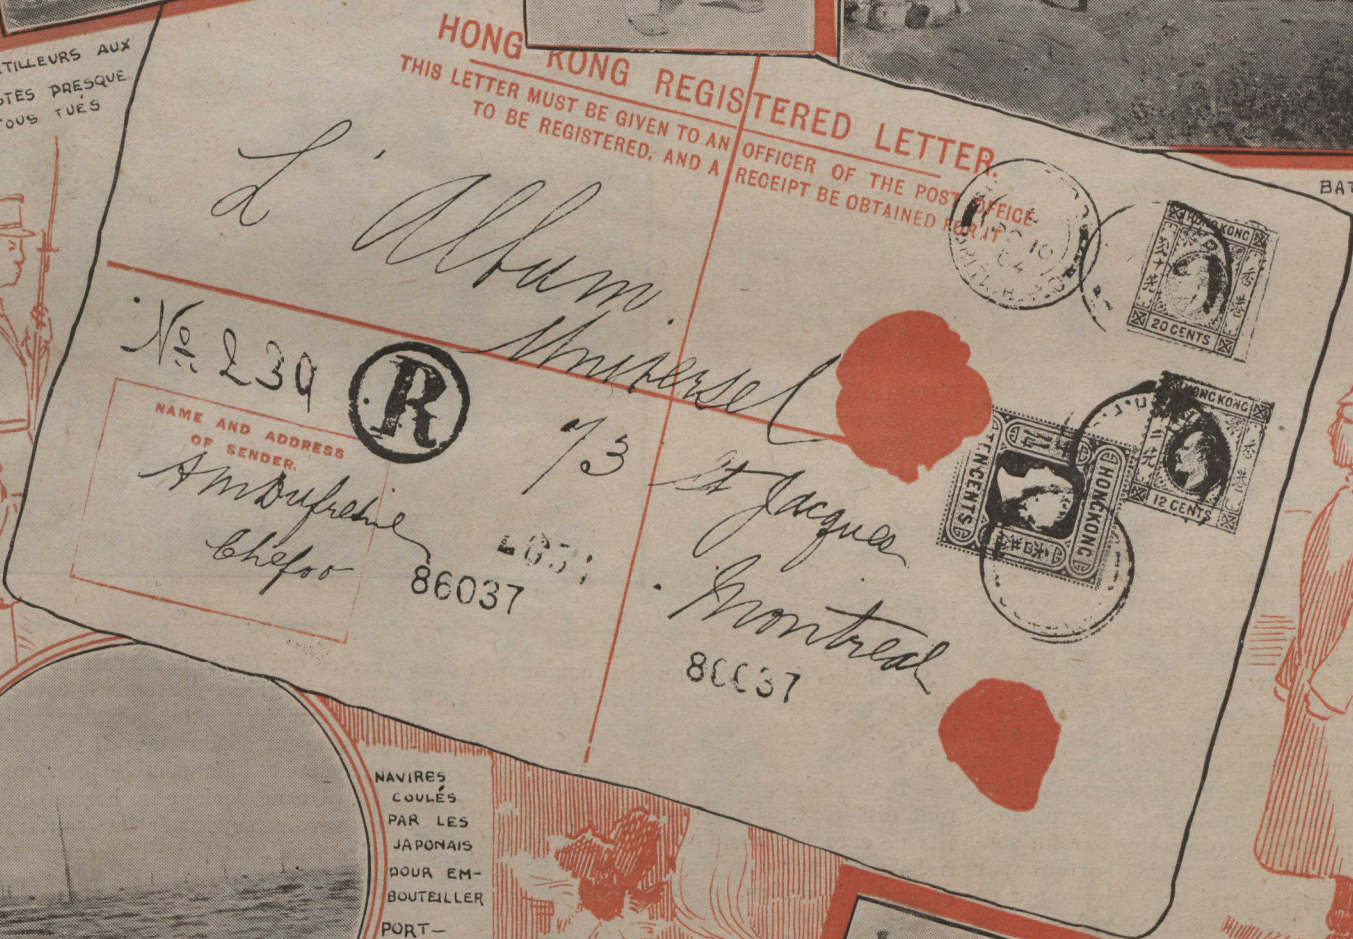 TILLEURS AUX
PRESQUE
TUÉS
HONG KONG REGISTERED LETTER.
THIS LETTER MUST BE GIVEN TO AN OFFICER OF THE POST OFFICE
TO BE REGISTERED, AND A RECEIPT BE OBTAINED FOR IT
BAT
L'Album
Universel
73 St Jacques
Montreal
No 239
R
NAME AND ADDRESS
OF SENDER.
A M Dufresne
Chefoo
86037
HONG KONG
20 CENTS
HONG KONG
12 CENTS
HONGKONG
TEN CENTS
NAVIRES
COULÉS
PAR LES
JAPONAIS
POUR EM-
BOUTEILLER
PORT-